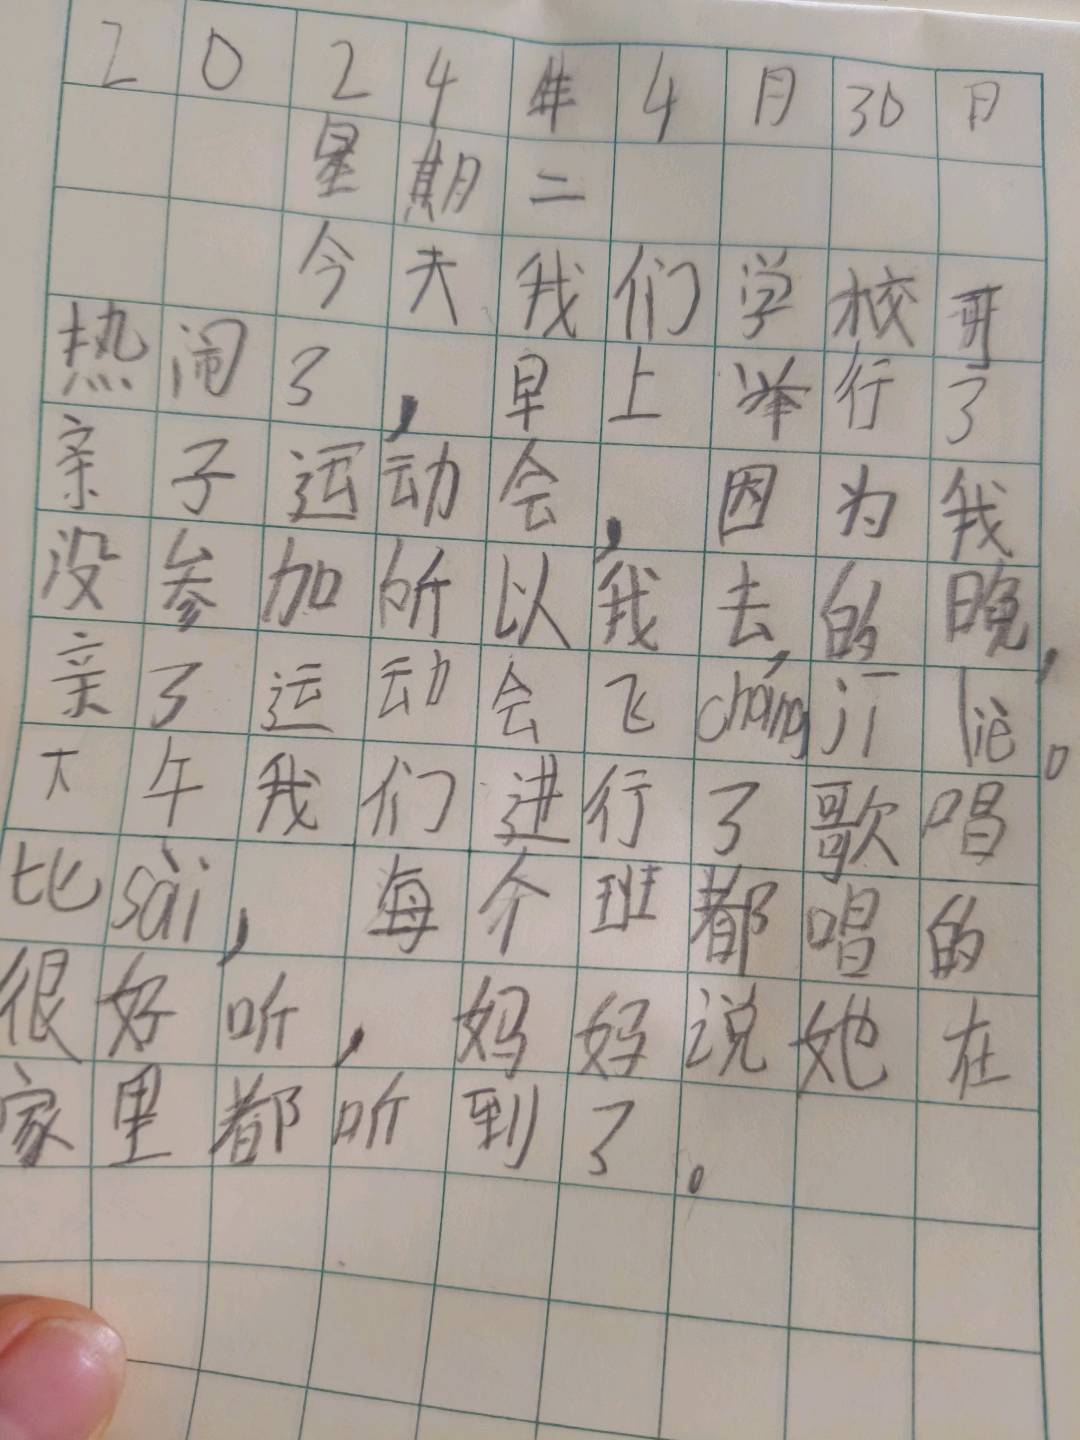 2024年4月30日
星期二
今天我们学校可
热闹了，早上举行了
亲子运动会，因为我
没参加所以我去的晚，
亲了运动会飞cháng jī liè。
下午我们进行了歌唱
比sài，每个班都唱的
很好听，妈妈说她在
家里都听到了。